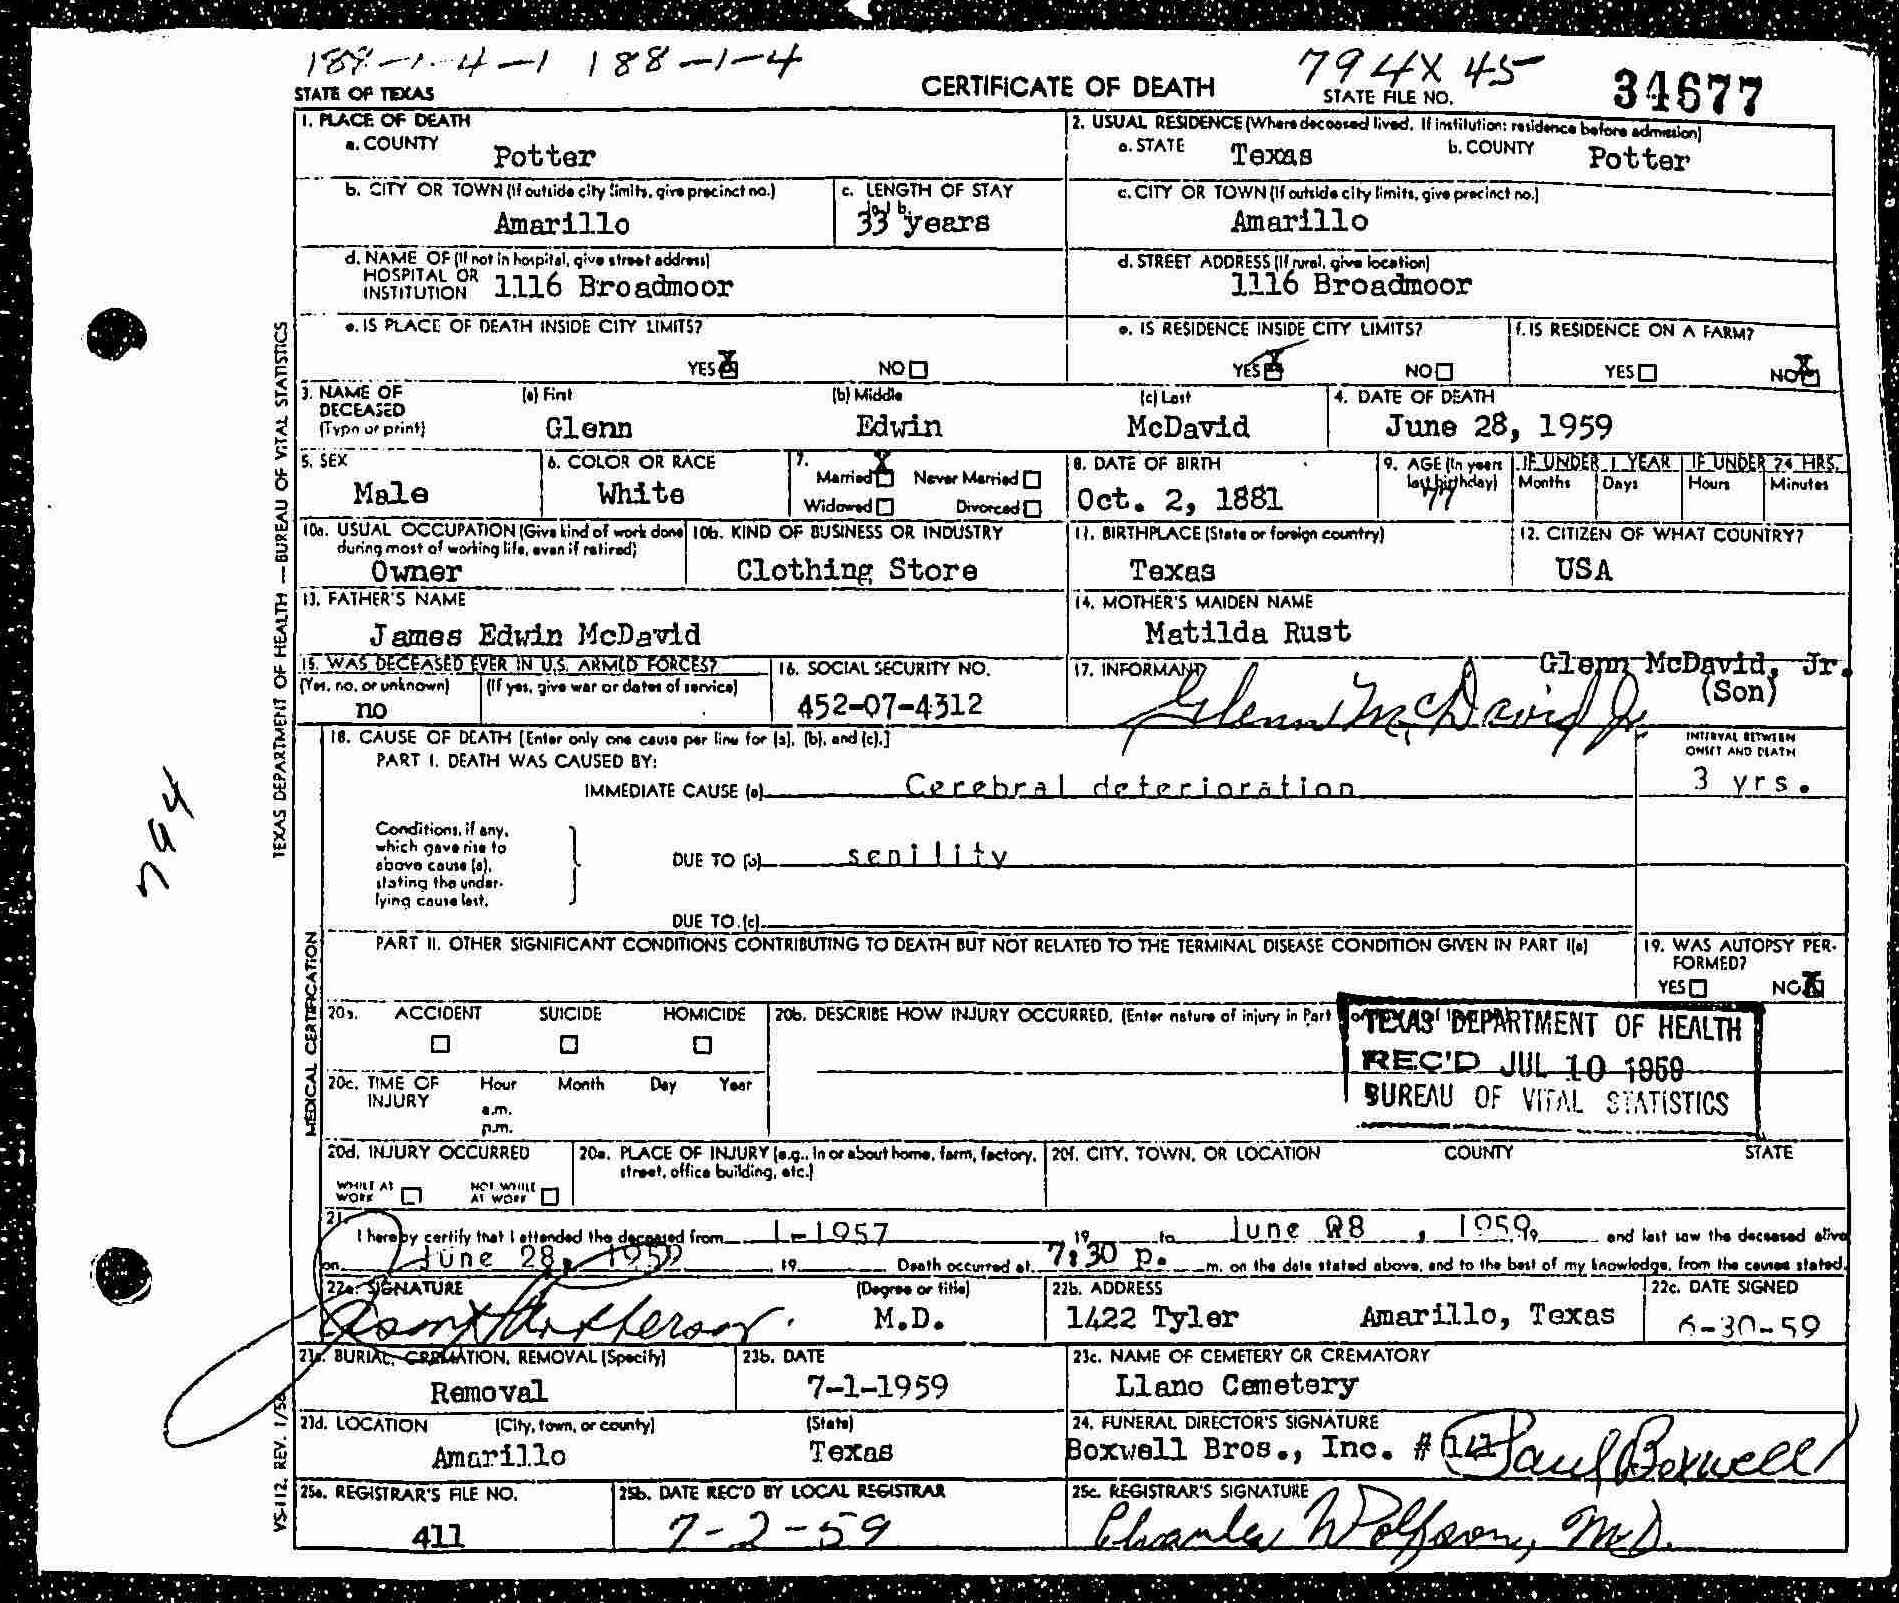 189-1-4-1 188-1-4
794X 45
34677
STATE OF TEXAS
CERTIFICATE OF DEATH
STATE FILE NO.
1. PLACE OF DEATH
a. COUNTY
Potter
2. USUAL RESIDENCE (Where deceased lived. If institution: residence before admission)
a. STATE Texas b. COUNTY Potter
b. CITY OR TOWN (If outside city limits, give precinct no.)
Amarillo
c. LENGTH OF STAY
in 1 b.
33 years
c. CITY OR TOWN (If outside city limits, give precinct no.)
Amarillo
d. NAME OF (If not in hospital, give street address)
HOSPITAL OR
INSTITUTION 1116 Broadmoor
d. STREET ADDRESS (If rural, give location)
1116 Broadmoor
e. IS PLACE OF DEATH INSIDE CITY LIMITS?
YES X NO
e. IS RESIDENCE INSIDE CITY LIMITS?
YES X NO
f. IS RESIDENCE ON A FARM?
YES NO X
3. NAME OF
DECEASED
(Type or print)
(a) First (b) Middle (c) Last
Glenn Edwin McDavid
4. DATE OF DEATH
June 28, 1959
5. SEX
Male
6. COLOR OR RACE
White
7.
Married X Never Married
Widowed Divorced
8. DATE OF BIRTH
Oct. 2, 1881
9. AGE (In years
last birthday)
77
IF UNDER 1 YEAR IF UNDER 24 HRS.
Months Days Hours Minutes
10a. USUAL OCCUPATION (Give kind of work done
during most of working life, even if retired)
Owner
10b. KIND OF BUSINESS OR INDUSTRY
Clothing Store
11. BIRTHPLACE (State or foreign country)
Texas
12. CITIZEN OF WHAT COUNTRY?
USA
13. FATHER'S NAME
James Edwin McDavid
14. MOTHER'S MAIDEN NAME
Matilda Rust
15. WAS DECEASED EVER IN U.S. ARMED FORCES?
(Yes, no, or unknown) (If yes, give war or dates of service)
no
16. SOCIAL SECURITY NO.
452-07-4312
17. INFORMANT
Glenn McDavid, Jr.
(Son)
Glenn McDavid Jr.
18. CAUSE OF DEATH [Enter only one cause per line for (a), (b), and (c).]
PART I. DEATH WAS CAUSED BY:
INTERVAL BETWEEN
ONSET AND DEATH
IMMEDIATE CAUSE (a) Cerebral deterioration 3 yrs.
Conditions, if any,
which gave rise to
above cause (a),
stating the under-
lying cause last.
DUE TO (b) senility
DUE TO (c)
PART II. OTHER SIGNIFICANT CONDITIONS CONTRIBUTING TO DEATH BUT NOT RELATED TO THE TERMINAL DISEASE CONDITION GIVEN IN PART I(a)
19. WAS AUTOPSY PER-
FORMED?
YES NO X
20a. ACCIDENT SUICIDE HOMICIDE
20b. DESCRIBE HOW INJURY OCCURRED. (Enter nature of injury in Part I or
TEXAS DEPARTMENT OF HEALTH
REC'D JUL 10 1959
BUREAU OF VITAL STATISTICS
20c. TIME OF
INJURY
Hour Month Day Year
a.m.
p.m.
20d. INJURY OCCURRED
WHILE AT
WORK
NOT WHILE
AT WORK
20e. PLACE OF INJURY (e.g., in or about home, farm, factory,
street, office building, etc.)
20f. CITY, TOWN, OR LOCATION COUNTY STATE
21.
I hereby certify that I attended the deceased from 1-1957 19 to June 28, 1959, and last saw the deceased alive
on June 28, 1959 19 Death occurred at 7:30 p. m. on the date stated above, and to the best of my knowledge, from the causes stated.
22a. SIGNATURE (Degree or title)
M.D.
22b. ADDRESS
1422 Tyler Amarillo, Texas
22c. DATE SIGNED
6-30-59
23a. BURIAL, CREMATION, REMOVAL (Specify)
Removal
23b. DATE
7-1-1959
23c. NAME OF CEMETERY OR CREMATORY
Llano Cemetery
23d. LOCATION (City, town, or county) (State)
Amarillo Texas
24. FUNERAL DIRECTOR'S SIGNATURE
Boxwell Bros., Inc. # Paul Boxwell
25a. REGISTRAR'S FILE NO.
411
25b. DATE REC'D BY LOCAL REGISTRAR
7-2-59
25c. REGISTRAR'S SIGNATURE
Charles Wolfson, M.D.
TEXAS DEPARTMENT OF HEALTH — BUREAU OF VITAL STATISTICS
MEDICAL CERTIFICATION
VS-112. REV. 1/58
794